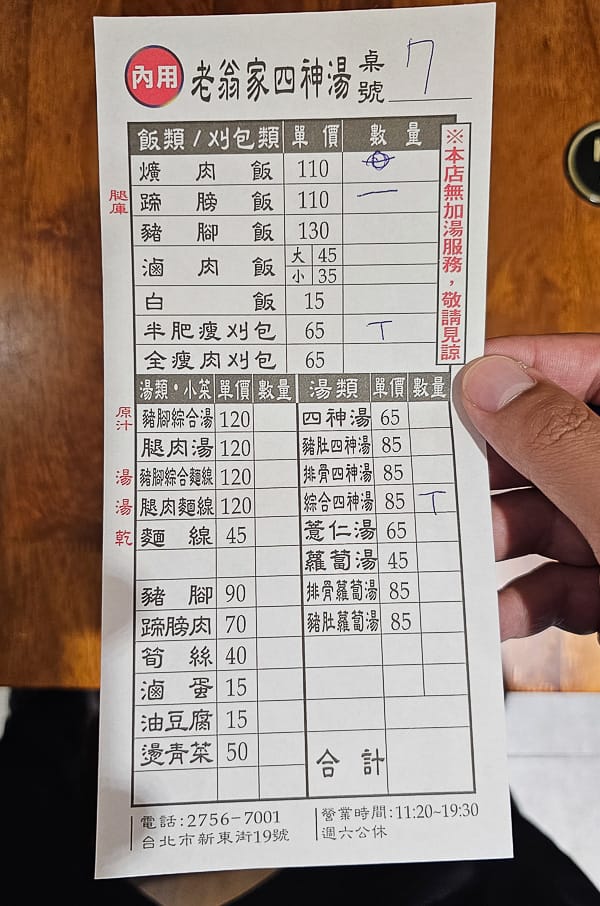 內用 老翁家四神湯 桌號 7
飯類/刈包類 單價 數量
爌肉飯 110
腿庫 蹄膀飯 110 一
豬腳飯 130
滷肉飯 大 45
小 35
白飯 15
半肥瘦刈包 65 T
全瘦肉刈包 65
※本店無加湯服務，敬請見諒
湯類・小菜 單價 數量
原汁 豬腳綜合湯 120
腿肉湯 120
湯 豬腳綜合麵線 120
湯 腿肉麵線 120
乾 麵線 45
豬腳 90
蹄膀肉 70
筍絲 40
滷蛋 15
油豆腐 15
燙青菜 50
湯類 單價 數量
四神湯 65
豬肚四神湯 85
排骨四神湯 85
綜合四神湯 85 T
薏仁湯 65
蘿蔔湯 45
排骨蘿蔔湯 85
豬肚蘿蔔湯 85
合計
電話:2756-7001
台北市新東街19號
營業時間:11:20~19:30
週六公休